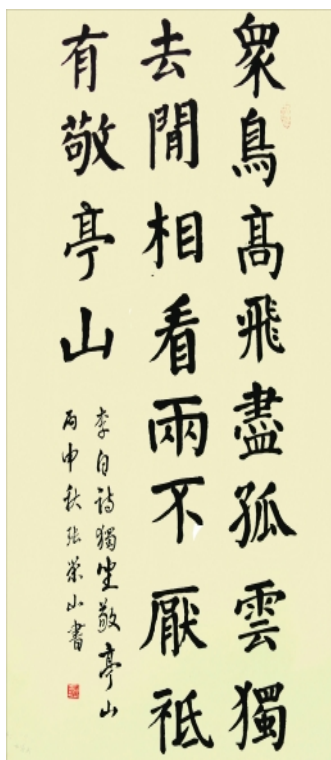 眾鳥高飛盡孤雲獨
去閒相看兩不厭祗
有敬亭山
李白詩獨坐敬亭山
丙申秋張榮山書